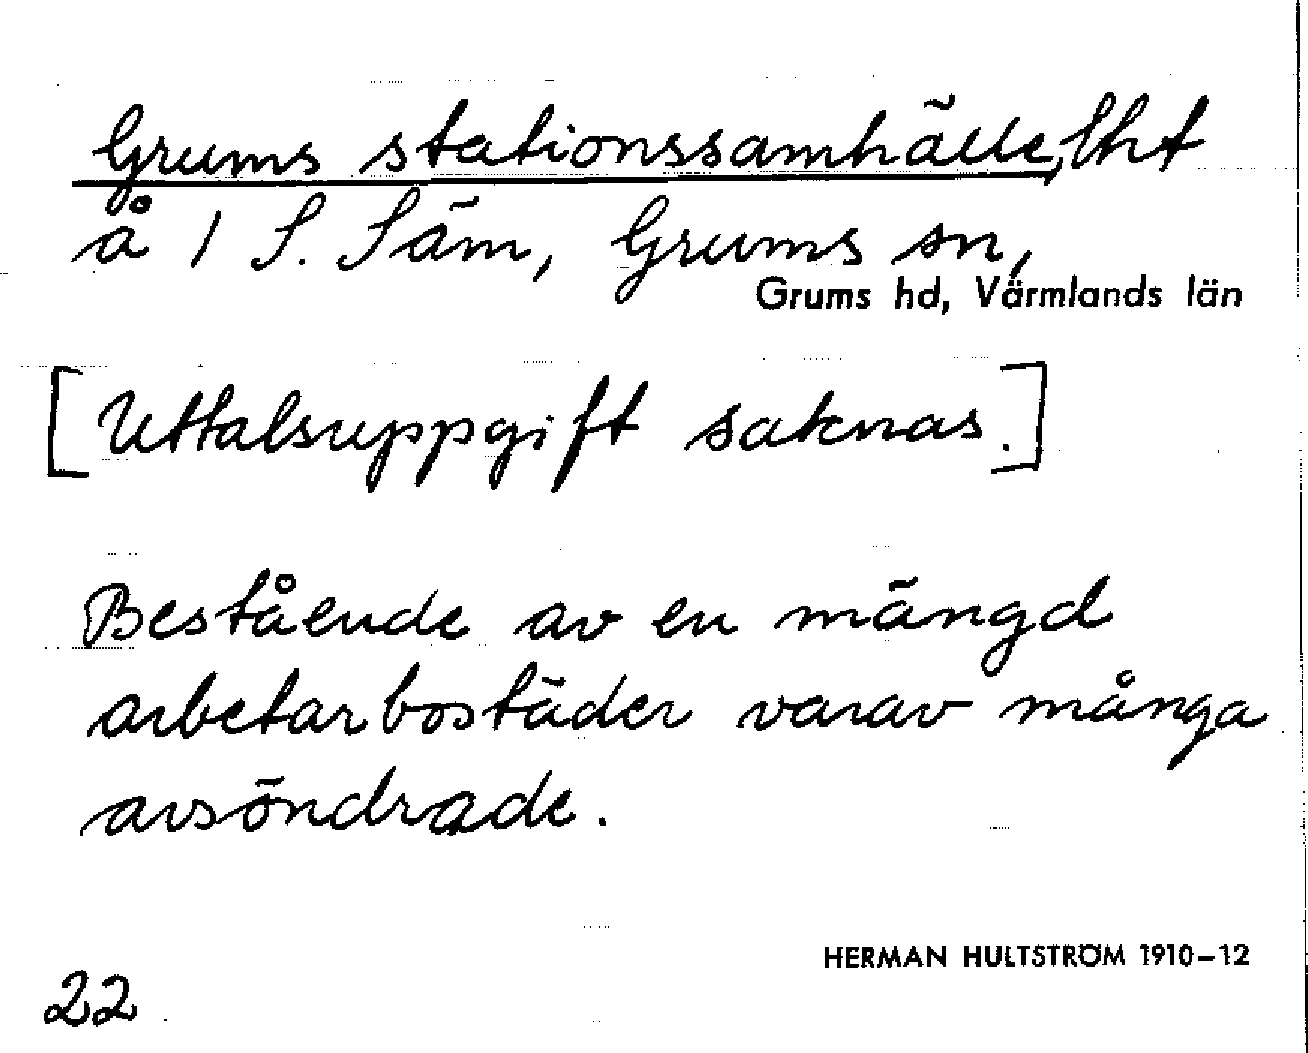 Grums stationssamhälle, lht
å 1 S. Säm, Grums sn,
Grums hd, Värmlands län
[Uttalsuppgift saknas.]
Bestående av en mängd
arbetarbostäder varav många
avsöndrade.
HERMAN HULTSTRÖM 1910–12
22